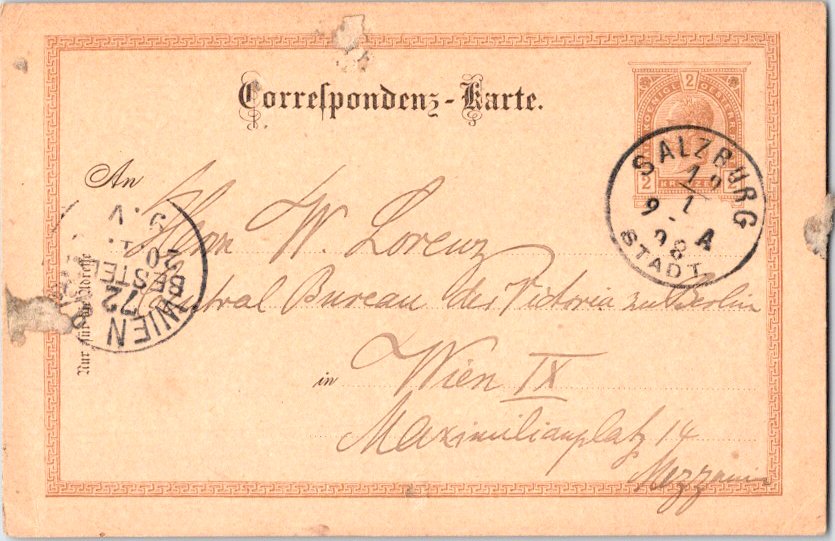 Correspondenz-Karte.
2
2 KREUZER 2
SALZBURG
19
1
9 - A
98
STADT
An
Herrn W. Lorenz
Central Bureau der Victoria zu Berlin
in Wien IX
Maximilianplatz 14
Mezzanin
Nur für die Adresse
WIEN
72
BESTELLT
20. 1.
9. V